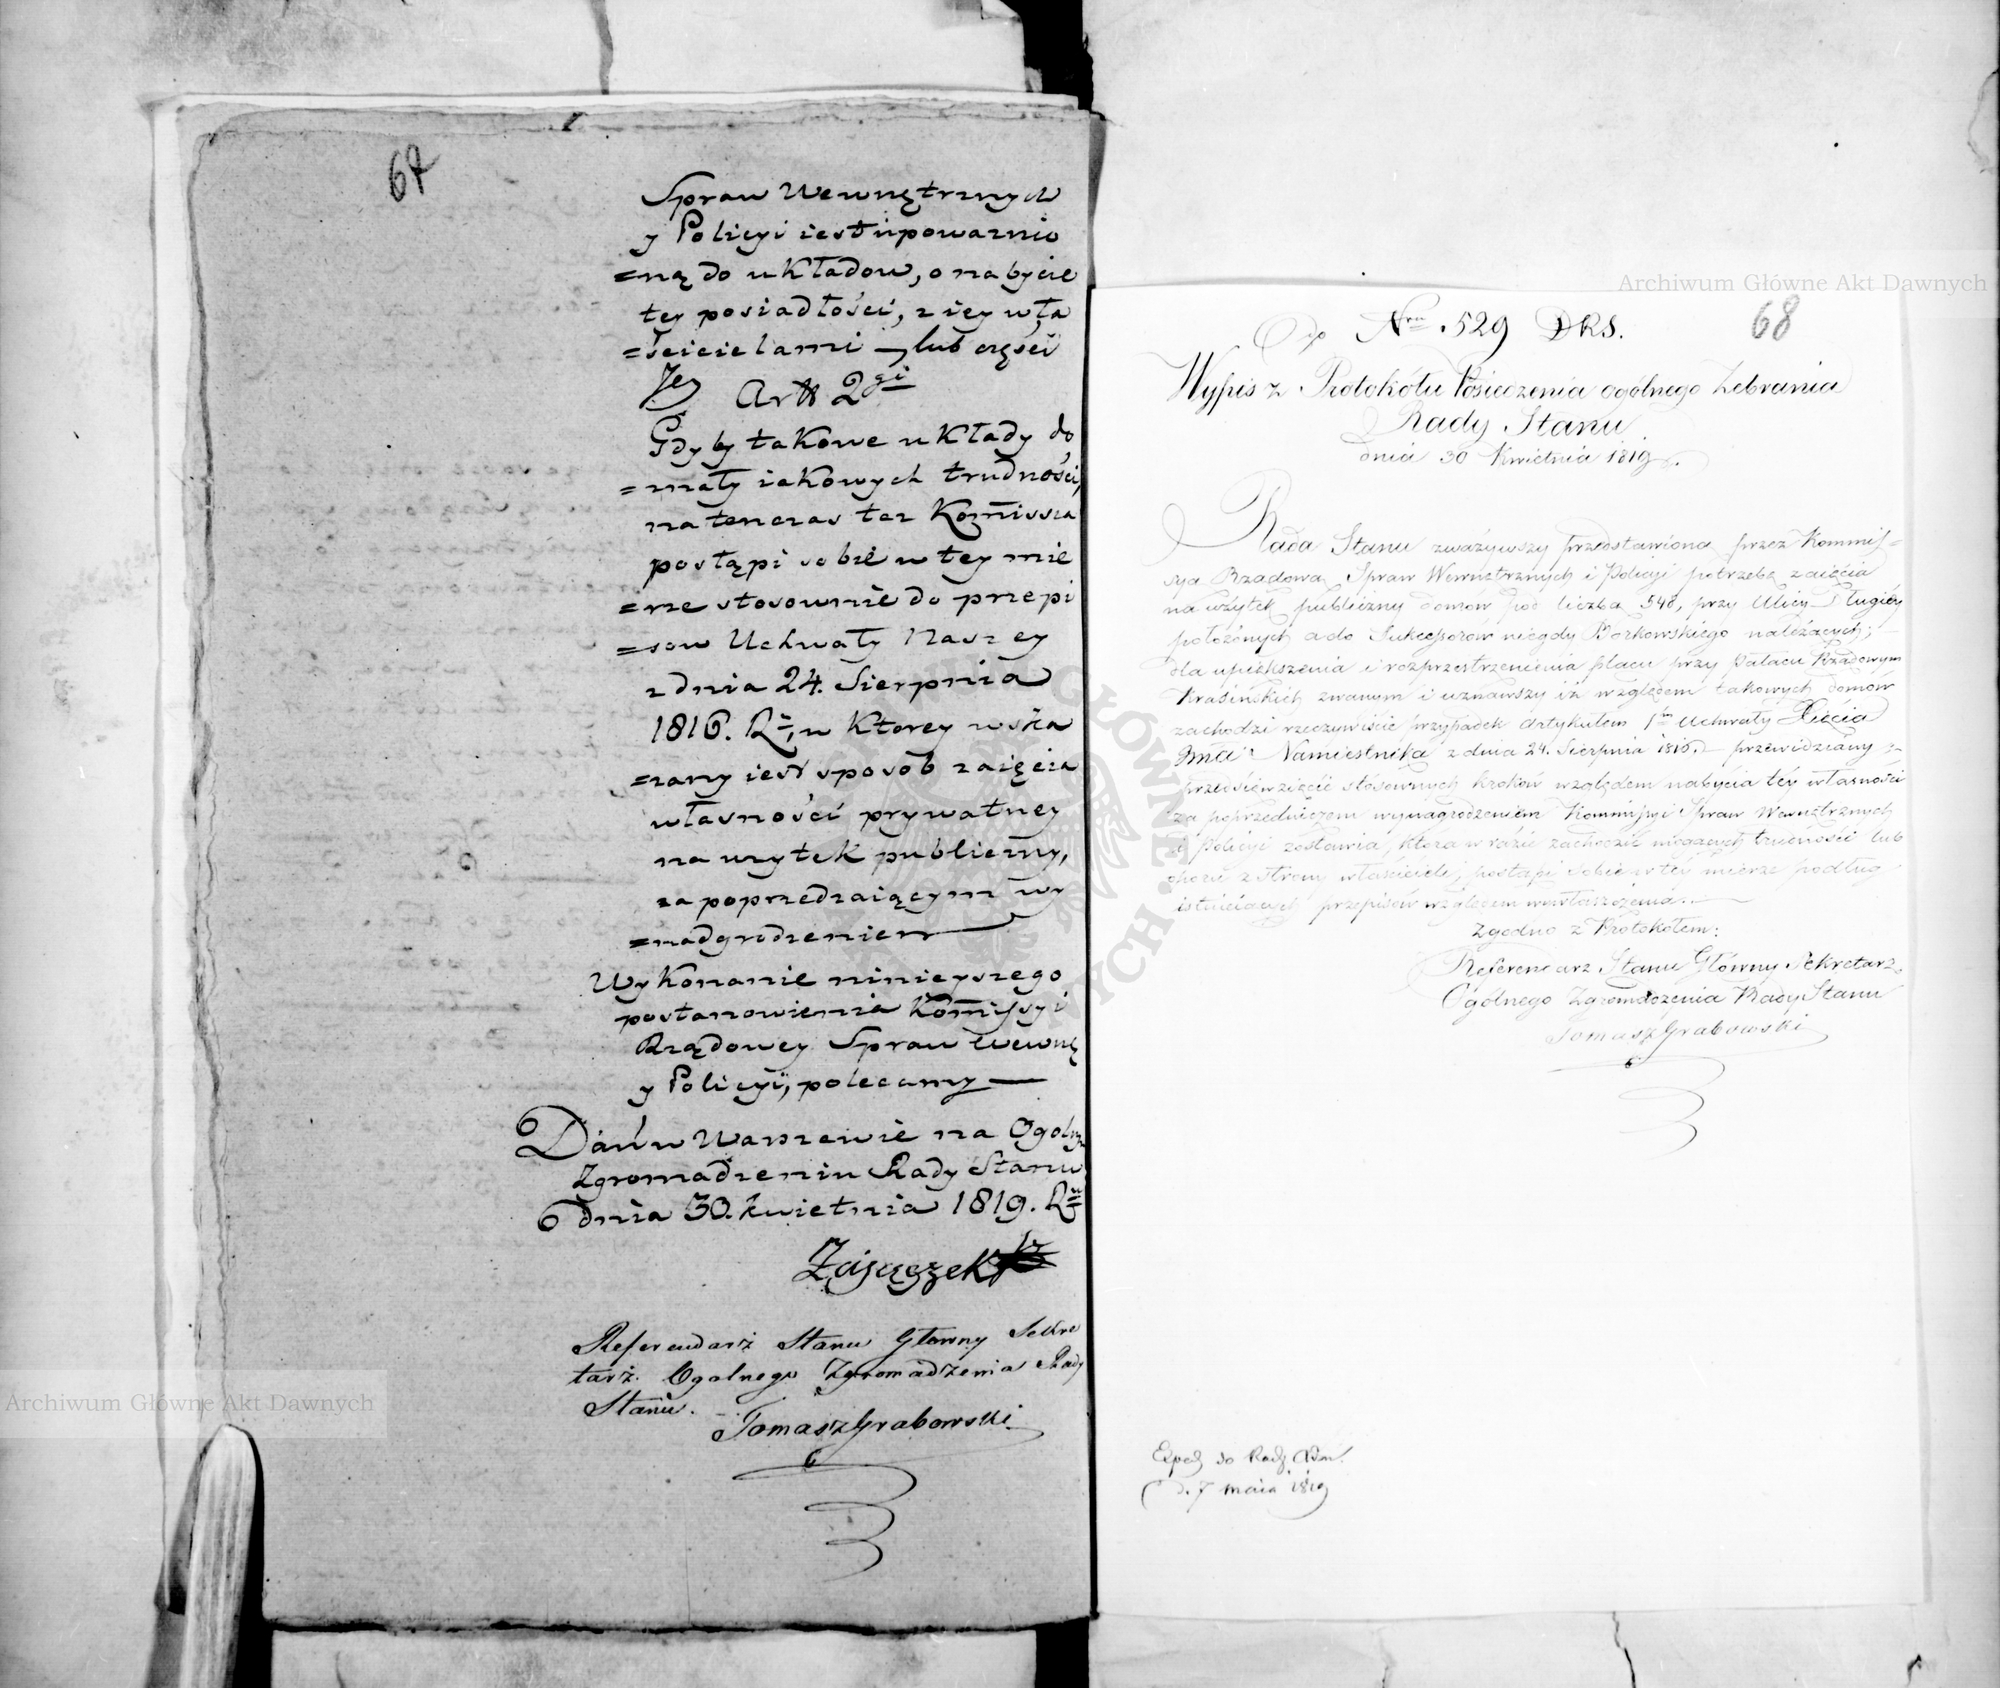 67
Spraw Wewnętrznych
y Policyi iest upoważnio
=ną do układow, o nabycie
tey posiadłości, z iey wła
=ścicielami — lub części
Jey
Artt 2gi
Gdyby takowe układy do
=znały iakowych trudności,
natenczas taz Kom̄issia
postąpi sobie w tey mie
=rze stosownie do przepi
=sow Uchwały Naszey
z dnia 24. Sierpnia
1816. Ru, w ktorey wska
=zany iest sposob zaięcia
własności prywatney
na uzytek publiczny,
za poprzedzaiącym wy
=nadgrodzeniem
Wykonanie ninieyszego
postanowienia Kom̄issyi
Rządowey Spraw Wewnę
y Policyi, polecamy —
Dan w Warszawie na Ogoln
Zgromadzeniu Rady Stanu
dnia 30. kwietnia 1819. Ru
Zajączek
Referendarz Stanu Głowny Sekre
tarz Ogolnego Zgromadzenia Rady
Stanu.
Tomasz Grabowski
68
Nru 529 DRS.
Wypis z Protokółu Posiedzenia ogólnego Zebrania
Rady Stanu
dnia 30 Kwietnia 1819 r.
Rada Stanu zważywszy przedstawioną przez Kommis=
syą Rządową Spraw Wewnętrznych i Policyi potrzebę zaięcia
na użytek publiczny domów pod liczbą 548, przy Ulicy Długiéy
położonych a do Sukcessorów niegdy Borkowskiego należących;
dla upiększenia i rozprzestrzenienia placu przy Pałacu Rządowym
Krasińskich zwanym i uznawszy iż względem takowych domów
zachodzi rzeczywiście przypadek Artykułem 1m Uchwały Xięcia
Namiestnika z dnia 24. Sierpnia 1816. — przewidziany;
przedsięwzięcie stósownych kroków względem nabycia téy własności
za poprzedniczem wynagrodzeniem Kommissyi Spraw Wewnętrznych
i Policyi zostawia, która w razie zachodzić mogących trudności lub
oporu z strony właścicieli, postąpi sobie w téy mierze podług
istnieiących przepisów względem wywłaszczenia. —
Zgodno z Protokółem:
Referendarz Stanu Główny Sekretarz
Ogólnego Zgromadzenia Rady Stanu
Tomasz Grabowski
Exped do Rady Adm.
d. 7 maia 1819
Archiwum Główne Akt Dawnych
Archiwum Główne Akt Dawnych